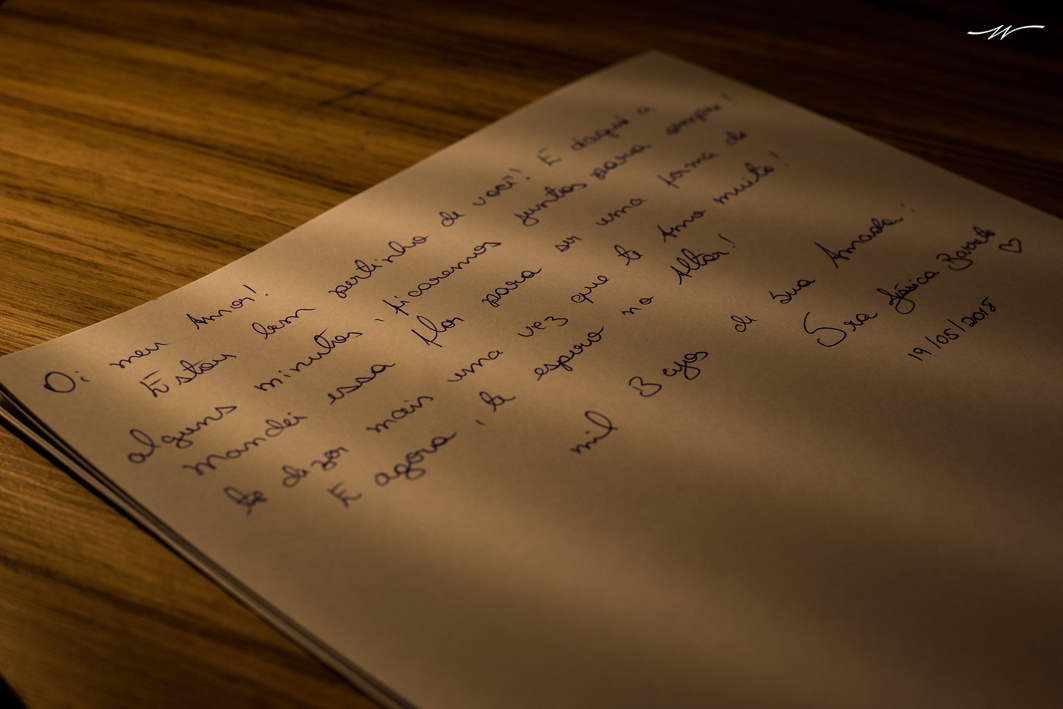 Oi meu Amor!
Estou bem pertinho de você! E daqui a
alguns minutos, ficaremos juntos para sempre!
Mandei essa flor para ser uma forma de
te dizer mais uma vez que te Amo muito!
E agora, te espero no Altar!
mil Bejos de sua Amada:
Sra Jéssica Barreto ♡
19/05/2018